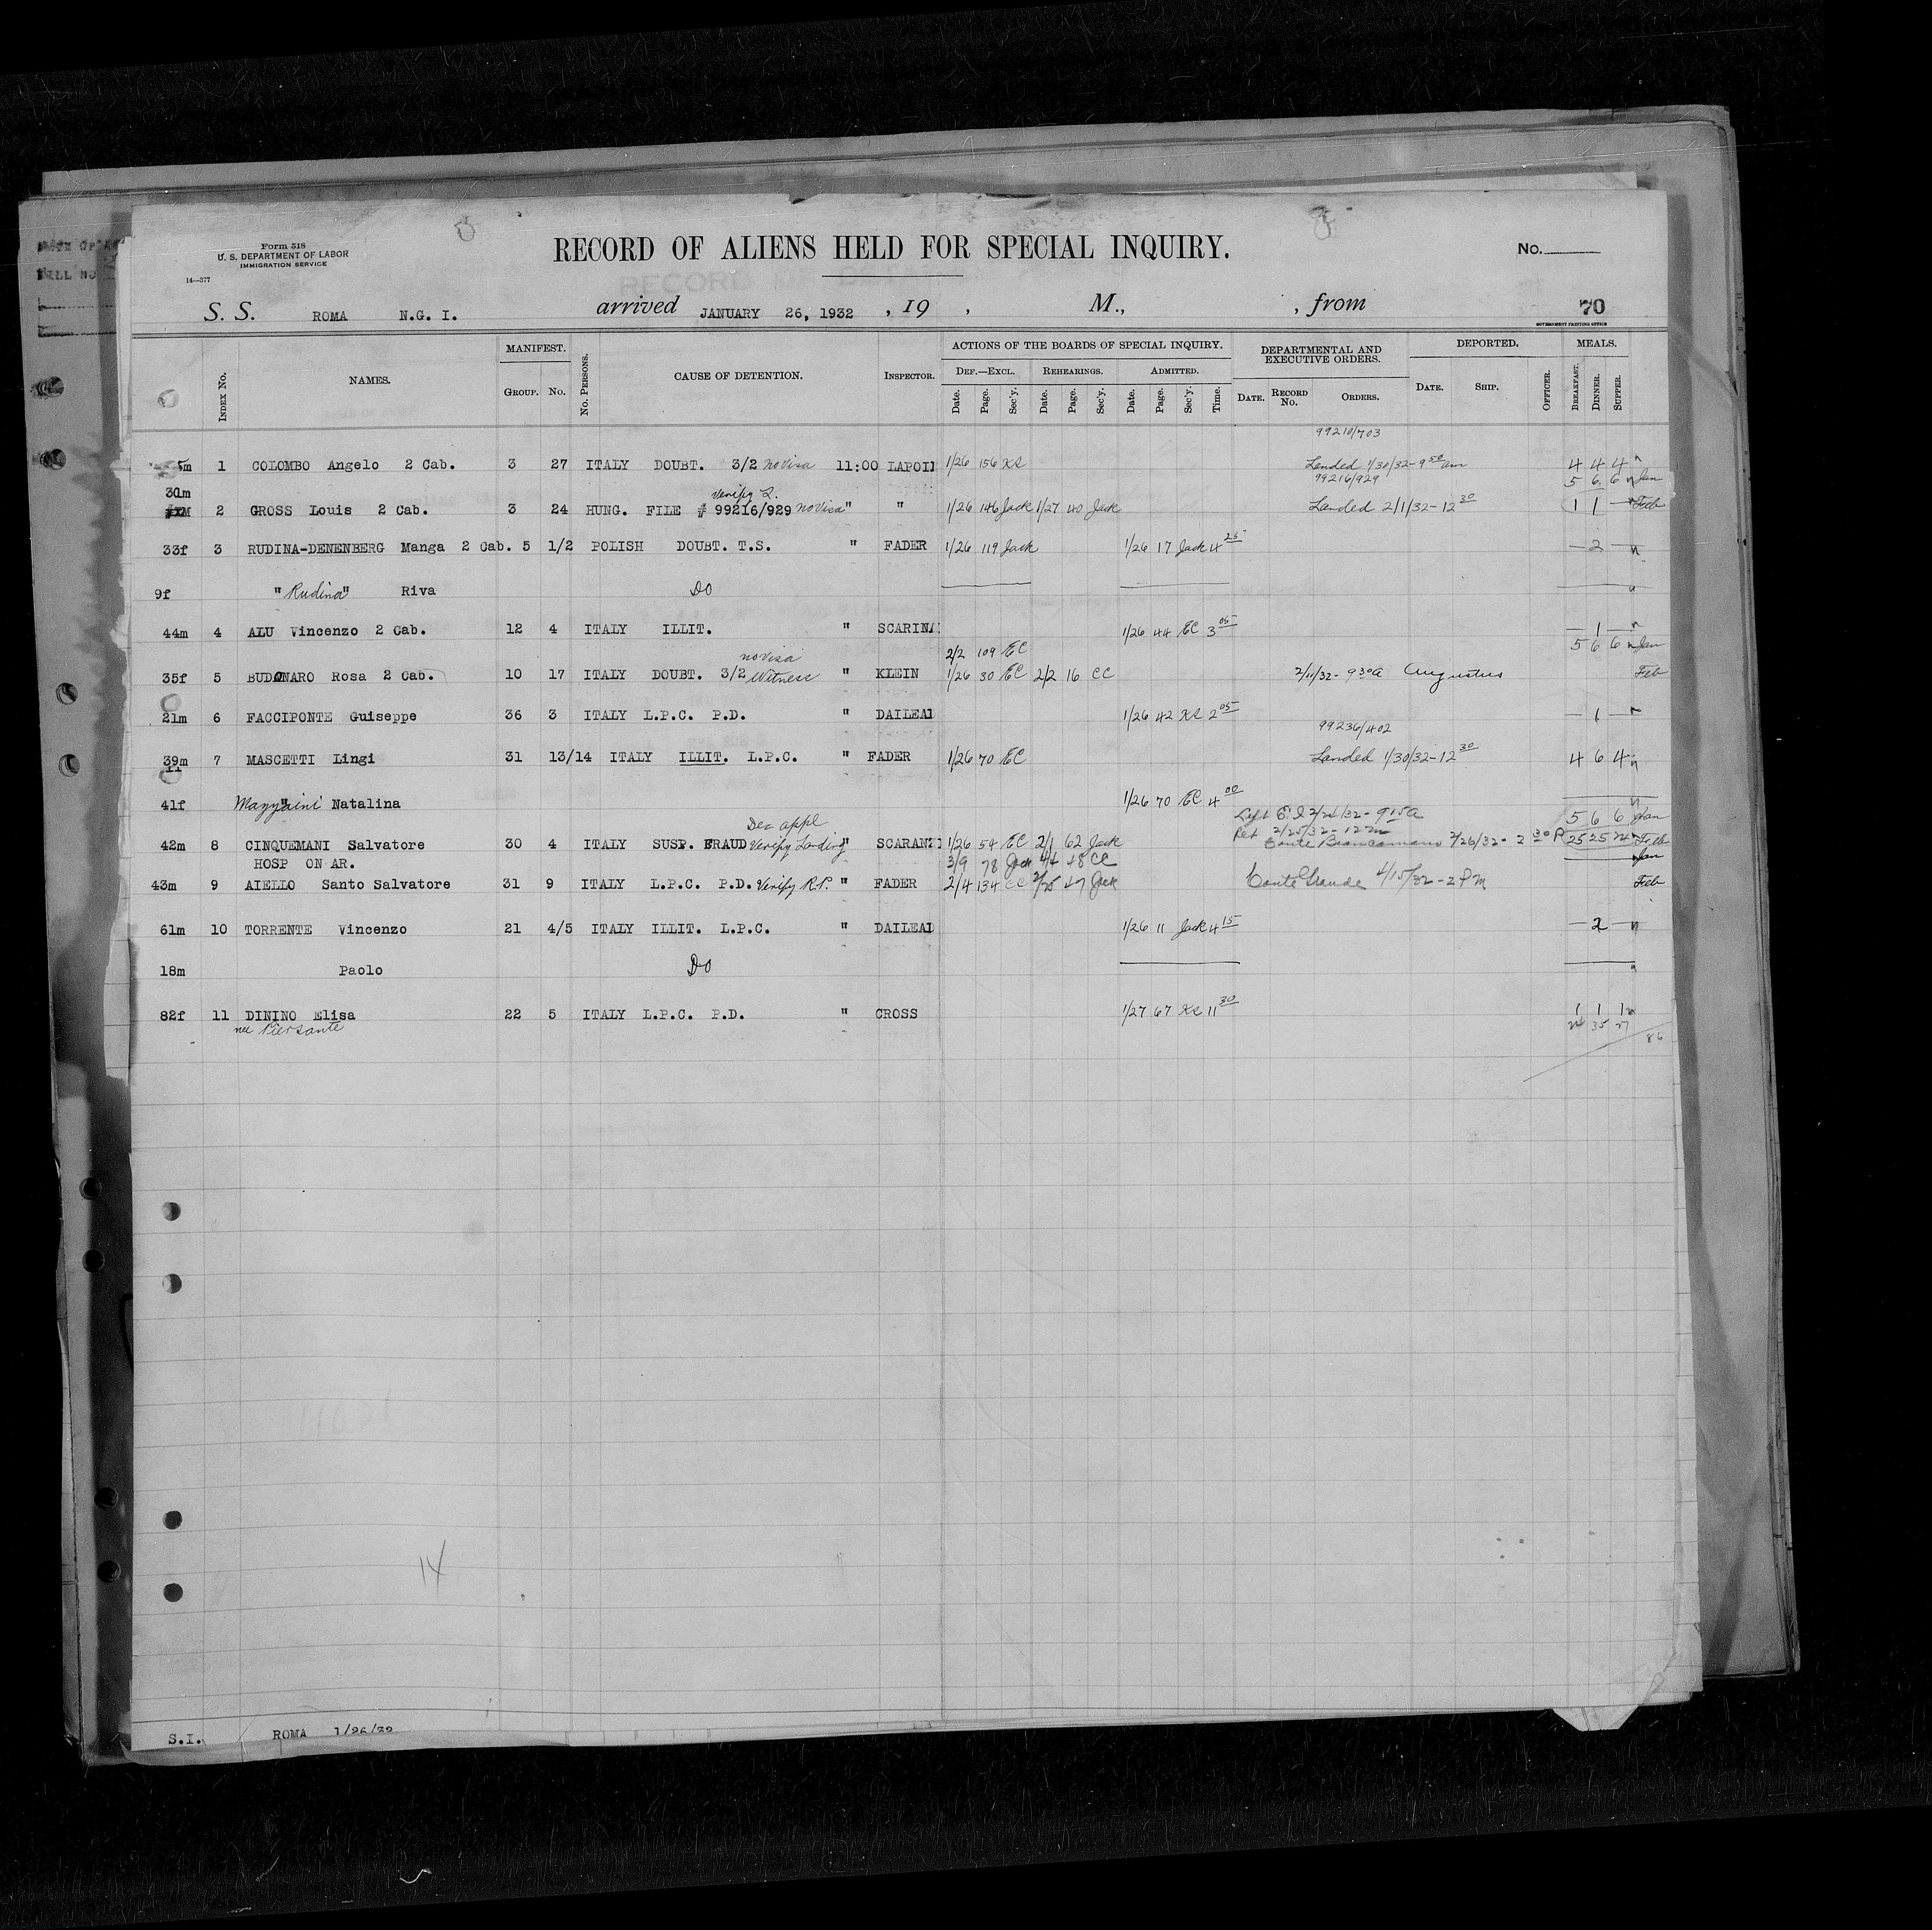 Form 518
U. S. DEPARTMENT OF LABOR
IMMIGRATION SERVICE
14—377
RECORD OF ALIENS HELD FOR SPECIAL INQUIRY.
No.
S. S. ROMA N.G. I. arrived JANUARY 26, 1932 , 19 , M., , from 70
GOVERNMENT PRINTING OFFICE
INDEX No. NAMES. MANIFEST. GROUP. No. No. PERSONS. CAUSE OF DETENTION. INSPECTOR.
ACTIONS OF THE BOARDS OF SPECIAL INQUIRY. DEF.—EXCL. REHEARINGS. ADMITTED.
Date. Page. Sec'y. Date. Page. Sec'y. Date. Page. Sec'y. Time.
DEPARTMENTAL AND EXECUTIVE ORDERS. DATE. RECORD No. ORDERS.
DEPORTED. DATE. SHIP. OFFICER.
MEALS. BREAKFAST. DINNER. SUPPER.
99210/703
5m 1 COLOMBO Angelo 2 Cab. 3 27 ITALY DOUBT. 3/2 no visa 11:00 LAPOI 1/26 156 KS Landed 1/30/32-9 50 am 4 4 4
30m Verify L. 99216/929 5 6 6 Jan
2 GROSS Louis 2 Cab. 3 24 HUNG. FILE # 99216/929 no visa " " 1/26 146 Jack 1/27 40 Jack Landed 2/1/32-12 30 1 1 — Feb
33f 3 RUDINA-DENENBERG Manga 2 Cab. 5 1/2 POLISH DOUBT. T.S. " FADER 1/26 119 Jack 1/26 17 Jack 4 25 — 2 —
9f " Rudina" Riva DO
44m 4 ALU Vincenzo 2 Cab. 12 4 ITALY ILLIT. " SCARINA 1/26 44 EC 3 05 — 1 —
no visa 2/2 109 EC 5 6 6 Jan
35f 5 BUDONARO Rosa 2 Cab. 10 17 ITALY DOUBT. 3/2 Witness " KLEIN 1/26 30 EC 2/2 16 CC 2/11/32-9 30 a Augustus Feb
21m 6 FACCIPONTE Guiseppe 36 3 ITALY L.P.C. P.D. " DAILEAD 1/26 42 KS 2 05 — 1 —
99236/402
39m 7 MASCETTI Lingi 31 13/14 ITALY ILLIT. L.P.C. " FADER 1/26 70 EC Landed 1/30/32-12 30 4 6 4
11
41f Natalina 1/26 70 EC 4 00
Left E.I 2/24/32-9 15 a 5 6 6 Jan
Dec appl Ret 2/25/32-12 m
42m 8 CINQUEMANI Salvatore 30 4 ITALY SUSP. FRAUD Verify Landing " SCARANZ 1/26 54 EC 2/1 62 Jack Conte Biancamano 2/26/32-2 30 P 25 25 24 Feb
HOSP ON AR. 3/9 78 Jack 4/4 48 CC Jan
43m 9 AIELLO Santo Salvatore 31 9 ITALY L.P.C. P.D. Verify R.P. " FADER 2/4 134 CC 2/25 47 Jack Conte Grande 4/15/32-2 PM Feb
61m 10 TORRENTE Vincenzo 21 4/5 ITALY ILLIT. L.P.C. " DAILEAD 1/26 11 Jack 4 15 — 2 —
18m Paolo DO
82f 11 DININO Elisa 22 5 ITALY L.P.C. P.D. " CROSS 1/27 67 KS 11 30 1 1 1
nee Piersante 24 35 27
86
14
S.I. ROMA 1/26/32